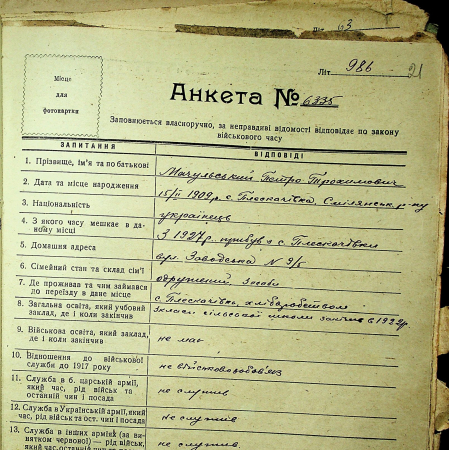 63
Літ 986
21
Місце
для
фотокартки
Анкета № 6335
Заповнюється власноручно, за неправдиві відомості відповідає по закону
військового часу
ЗАПИТАННЯ
ВІДПОВІДІ
1. Прізвище, ім'я та по батькові
Мачульський Петро Трохимович
2. Дата та місце народження
15/II 1909 р. с. Плескачівка, Смілянськ. р-ну
3. Національність
українець
4. З якого часу мешкає в даному місці
З 1927 р. прибув з с. Плескачівки
5. Домашня адреса
вул. Заводська N 9/5
6. Сімейний стан та склад сім'ї
одружений,
7. Де проживав та чим займався
до переїзду в дане місце
с. Плескачівка, хліборобством
8. Загальна освіта, який учбовий
заклад, де і коли закінчив
сільської школи закінчив в 1922 р.
9. Військова освіта, який заклад,
де і коли закінчив
не має
10. Відношення до військової
служби до 1917 року
не військовозобов'яз
11. Служба в б. царській армії,
який час, рід військ та
останній чин і посада
не служив
12. Служба в Українській армії, який
час, рід військ та ост. чин і посада
не служив
13. Служба в інших арміях (за ви-
нятком червоної) — рід військ,
не служив